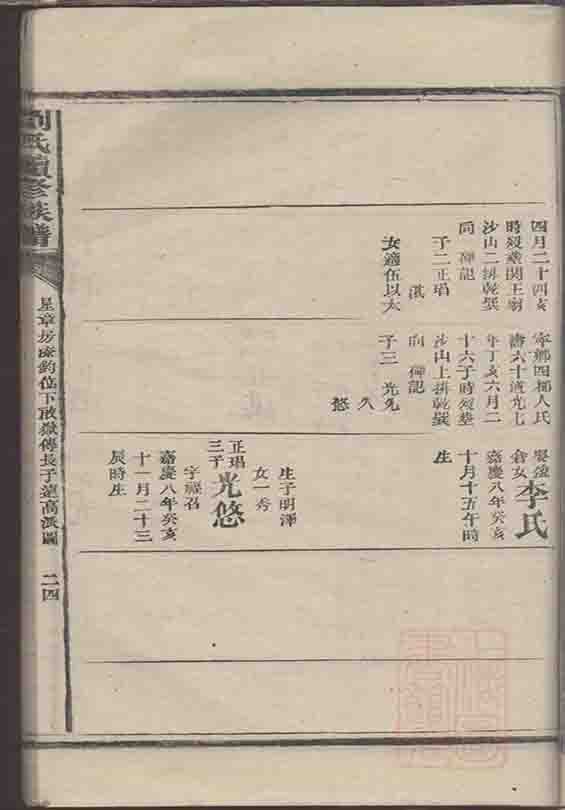 四月二十四亥
時殁葬関王廟
沙山二排乾巽
向碑記
子二正琩
淇
女適伍以大
寧鄉四都人氏
壽六十道光七
年丁亥六月二
十六子時殁葬
沙山上排乾巽
向碑記
子三光先
久
悠
娶蓬
倉女李氏
嘉慶八年癸亥
十月十五午時
生
生子明澤
女一秀
正琩
三子光悠
字福召
嘉慶八年癸亥
十一月二十三
辰時生
劉氏續修族譜
星章坊
位下敢嶽傳長子遠高派圖
二四